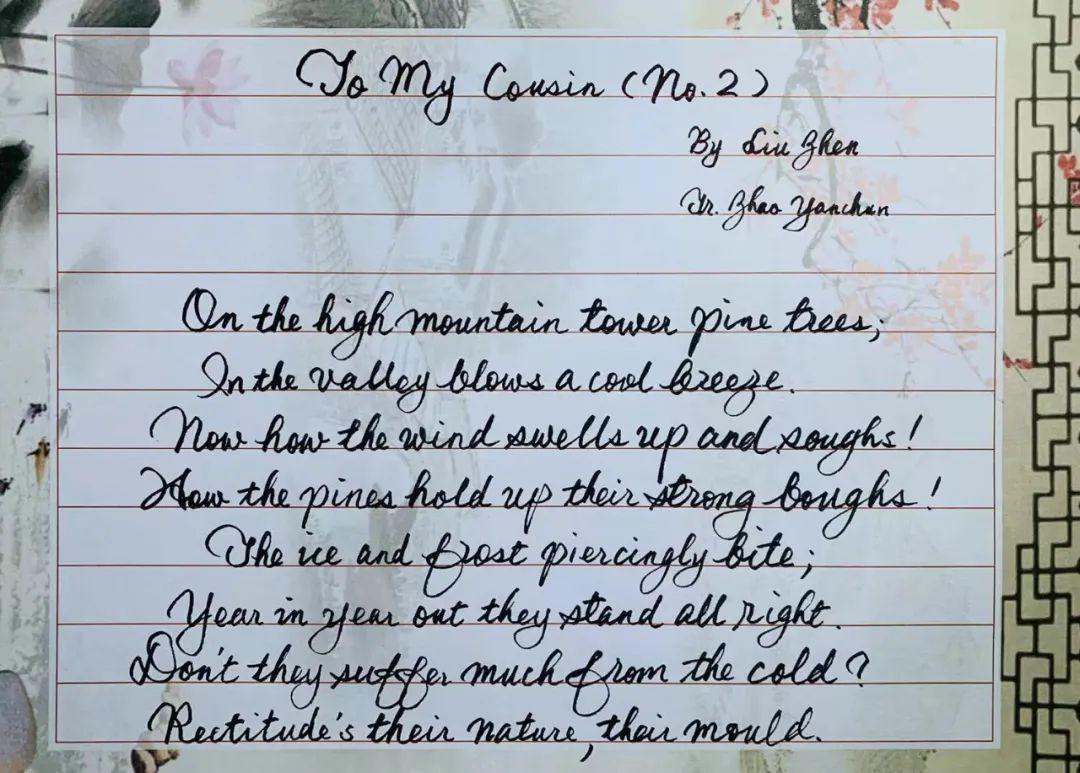 To My Cousin (No. 2)
By Liu Zhen
Tr. Zhao Yanchun
On the high mountain tower pine trees;
In the valley blows a cool breeze.
Now how the wind swells up and soughs!
How the pines hold up their strong boughs!
The ice and frost piercingly bite;
Year in year out they stand all right.
Don't they suffer much from the cold?
Rectitude's their nature, their mould.